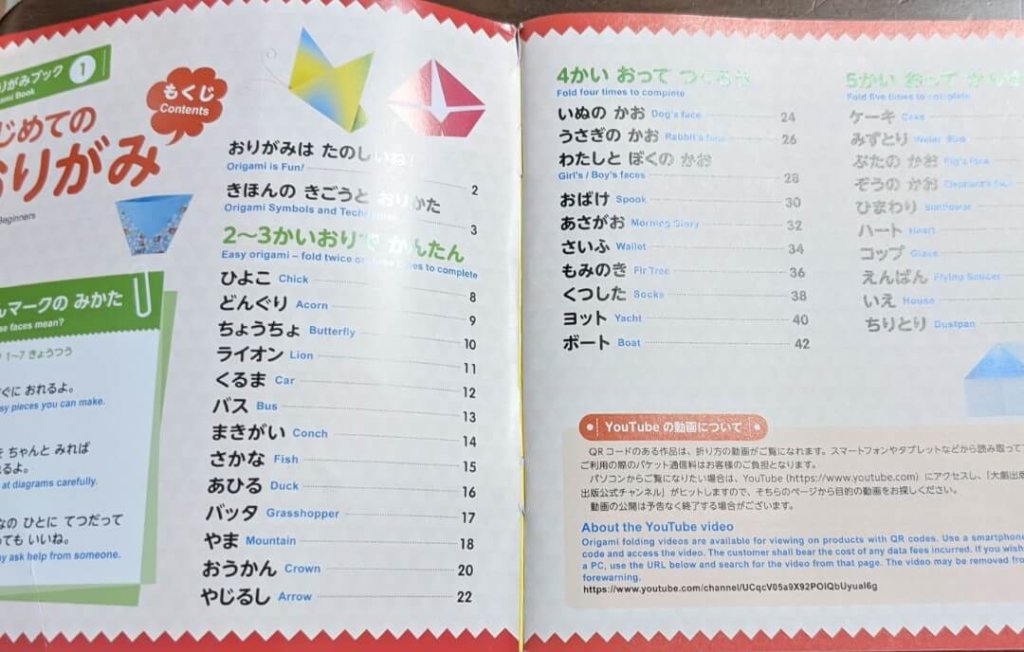 りがみブック 1
ami Book
もくじ
Contents
じめての
おりがみ
Beginners
んマークの みかた
se faces mean?
1〜7 きょうつう
ぐに おれるよ。
sy pieces you can make.
ちゃんと みれば
るよ。
at diagrams carefully.
なの ひとに てつだって
ても いいね。
ay ask help from someone.
おりがみは たのしいね!
Origami is Fun! 2
きほんの きごうと おりかた
Origami Symbols and 3
2〜3かいおりで かんたん
Easy origami – fold twice or times to complete
ひよこ Chick 8
どんぐり Acorn 9
ちょうちょ Butterfly 10
ライオン Lion 11
くるま Car 12
バス Bus 13
まきがい Conch 14
さかな Fish 15
あひる Duck 16
バッタ Grasshopper 17
やま Mountain 18
おうかん Crown 20
やじるし Arrow 22
4かい おって つくろう
Fold four times to complete
いぬの かお Dog's face 24
うさぎの かお Rabbit's face 26
わたしと ぼくの かお
Girl's / Boy's faces 28
おばけ Spook 30
あさがお Morning Glory 32
さいふ Wallet 34
もみのき Fir Tree 36
くつした Socks 38
ヨット Yacht 40
ボート Boat 42
5かい おって
Fold five times to complete
ケーキ Cake
みずとり Water Bird
ぶたの かお Pig's face
ぞうの かお Elephant's face
ひまわり Sunflower
ハート Heart
コップ Glass
えんばん Flying Saucer
いえ House
ちりとり Dustpan
YouTube の動画について
QR コードのある作品は、折り方の動画がご覧になれます。スマートフォンやタブレットなどから読み取って
ご利用の際のパケット通信料はお客様のご負担となります。
パソコンからご覧になりたい場合は、YouTube (https://www.youtube.com) にアクセスし、「大創出版
出版公式チャンネル」がヒットしますので、そちらのページから目的の動画をお探しください。
動画の公開は予告なく終了する場合がございます。
About the YouTube video
Origami folding videos are available for viewing on products with QR codes. Use a smartphone
code and access the video. The customer shall bear the cost of any data fees incurred. If you wish
a PC, use the URL below and search for the video from that page. The video may be removed from
forewarning.
https://www.youtube.com/channel/UCqcV05a9X92POIQbUyual6g